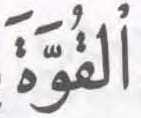 ٱلقُوَّةَ